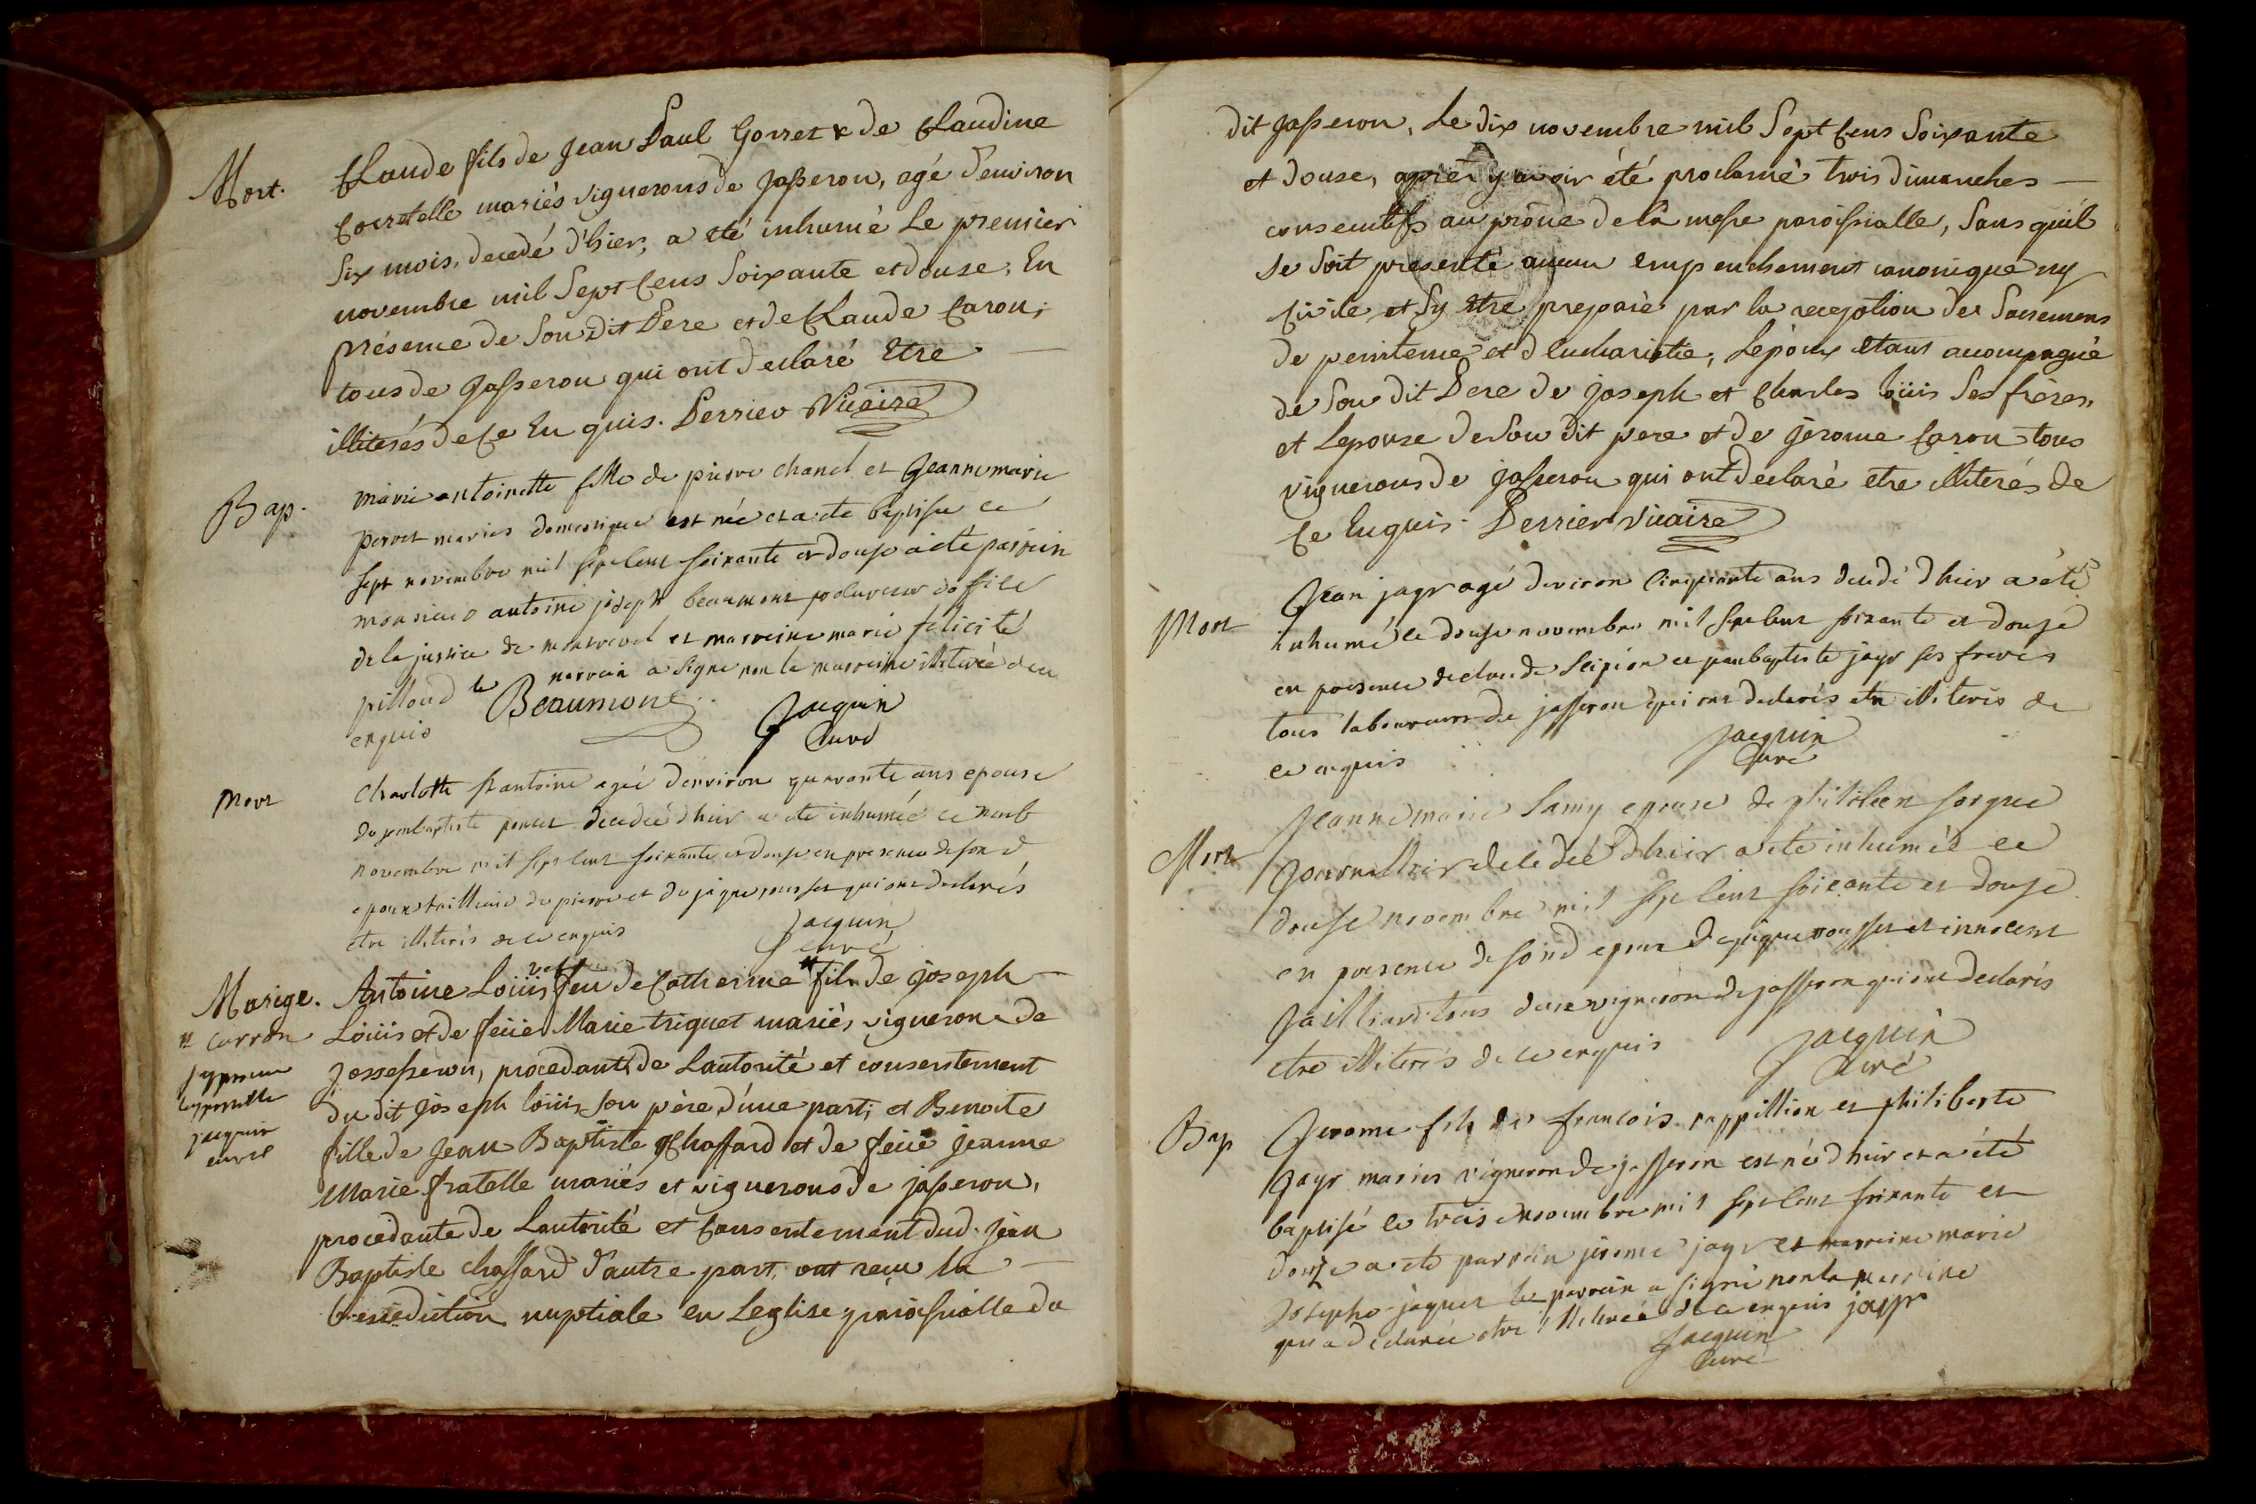 Mort.
Claude fils de Jean Paul Gorret & de Claudine
mariés vignerons de jasseron, agé denviron
Six mois, decedé d'hier, a eté inhumé Le premier
novembre mil Sept Cens Soixante et douse, En
présence de Son Dit Pere et de Claude Caron,
tous de Jasseron qui ont declaré Etre
illiterés de Ce Enquis. Perrier Vicaire
Bap.
marie antoinette fille de pierre chanel et Jeanne marie
perret mariés domestique est née et a ete baptisee ce
sept novembre mil sept Cent soixante et douse a été parrein
monsieur antoine joseph beaumont procureur doffice
de la justice de montrevel et marreine marie felicité
pilloud le parrain a signe non la marreine illiterée de ce
enquis Beaumont Jacquin
Curé
Mort
Charlotte st antoine agée denviron quarante ans epouse
de jean baptiste perret decedée dhier a ete inhumée ce neuf
novembre mil sept Cent soixante et douse en presence de son d
epoux de pierre et de jaque rousset qui ont declarés
etre illiterés de ce enquis Jacquin
curé
Mariage.
Antoine Loüis veuf de Catherine # fils de joseph
# carron
Loüis et de feüe Marie triquet mariés, vignerons de
japprouve
lapostille
jacquin
curé
Josseseron, procedant de Lautorité et consentement
du dit joseph loüis son père d'une part; et Benoite
fille de Jean Baptiste Chaffard et de feüe jeanne
Marie fratelle mariés et vignerons de jasseron,
procedante de Lautorité et Consentement dud. jean
Baptiste chaffard d'autre part, ont reçu la
benediction nuptiale en Leglise paroissialle du
dit jasseron, Le dix novembre mil Sept Cens Soixante
et douse, après y avoir été proclamé trois dimanches
consecutifs au prône de la messe paroissialle, Sans quil
se Soit presenté aucun empenchement canonique ny
Civile et Sy etre preparé par la reception des Sacremens
de penitence et d'Eucharistie, Lépoux etant acompagné
de Son dit Pere de joseph et Charles loüis Ses frères,
et Lepouse de Son dit pere et de jèrome Caron tous
vignerons de jasseron qui ont declaré etre illiterés de
Ce Enquis. Perrier Vicaire
Mort
Jean jayr agé denviron Cinquante ans decedé dhier a été
inhumé ce douse novembre mil sept Cent soixante et douse
en presence de claude Scipion et jean baptiste jayr ses freres
tous laboureurs de jasseron qui ont declarés etre illiterés de
ce enquis Jacquin
Curé
Mort
Jeanne marie Lamy epouse de philibert sorgue
Journallier decedée dhier a été inhumée ce
douse novembre mil sept Cent soixante et douse
en presence de son d epoux de jaque rousset et innocent
Jailliard tous deux vigneron de jasseron qui ont declarés
etre illiterés de ce enquis Jacquin
Curé
Bap
Jerome fils de francois pappillion et philiberte
Jayr mariés vigneron de jasseron est né dhier et a été
baptisé le treise novembre mil sept Cent soixante et
douze a ete parrein jerome jayr et marreine marie
Josephe jaquet le parrein a signé non la marreine
qui a declarée etre illiterée de ce enquis jayr
Jacquin
Curé